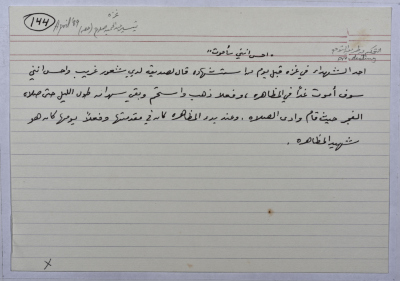 144
April/89
غزة
"احس انني سأموت"
احد الشهداء في غزة قبل يوم من استشهاده قال لصديقه لدي شعور غريب واحس انني
سوف أموت غداً في المظاهره، وفعلا ذهب واستحم وبقي سهران طول الليل حتى صلاه
الفجر حيث قام وادى الصلاه. وعند بدء المظاهره كان في مقدمتها وفعلاً يومها كان هو
شهيد المظاهره.
x